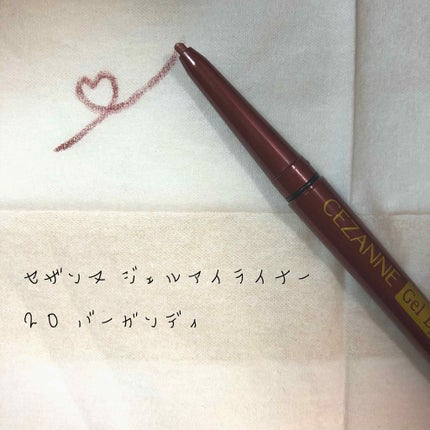 CEZANNE
Gel
セザンヌ ジェルアイライナー
20 バーガンディ